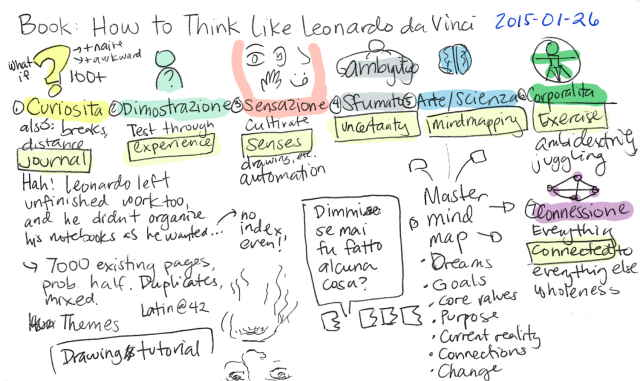 Book: How to Think Like Leonardo da Vinci
2015-01-26
What if
→ + naive
→ + awkward
100+
① Curiosita
also: breaks,
distance
Journal
② Dimostrazione
Test through
experience
③ Sensazione
Cultivate
Senses
drawing, etc.
automation
ambiguity
④ Sfumato
Uncertainty
⑤ Arte/Scienza
mindmapping
⑥ Corporalita
Exercise
ambidextrity,
juggling
Hah! Leonardo left
unfinished work too,
and he didn't organize
his notebooks as he wanted...
→ no
index,
even!!
→ 7000 existing pages,
prob. half. Duplicates,
mixed.
Themes
Latin@42
Drawing tutorial
Dimmi
se mai
fu fatto
alcuna
cosa?
Master
mind
map
• Dreams
• Goals
• Core values
• Purpose
• Current reality
• Connections
• Change
⑦ Connessione
Everything
Connected to
everything else
wholeness